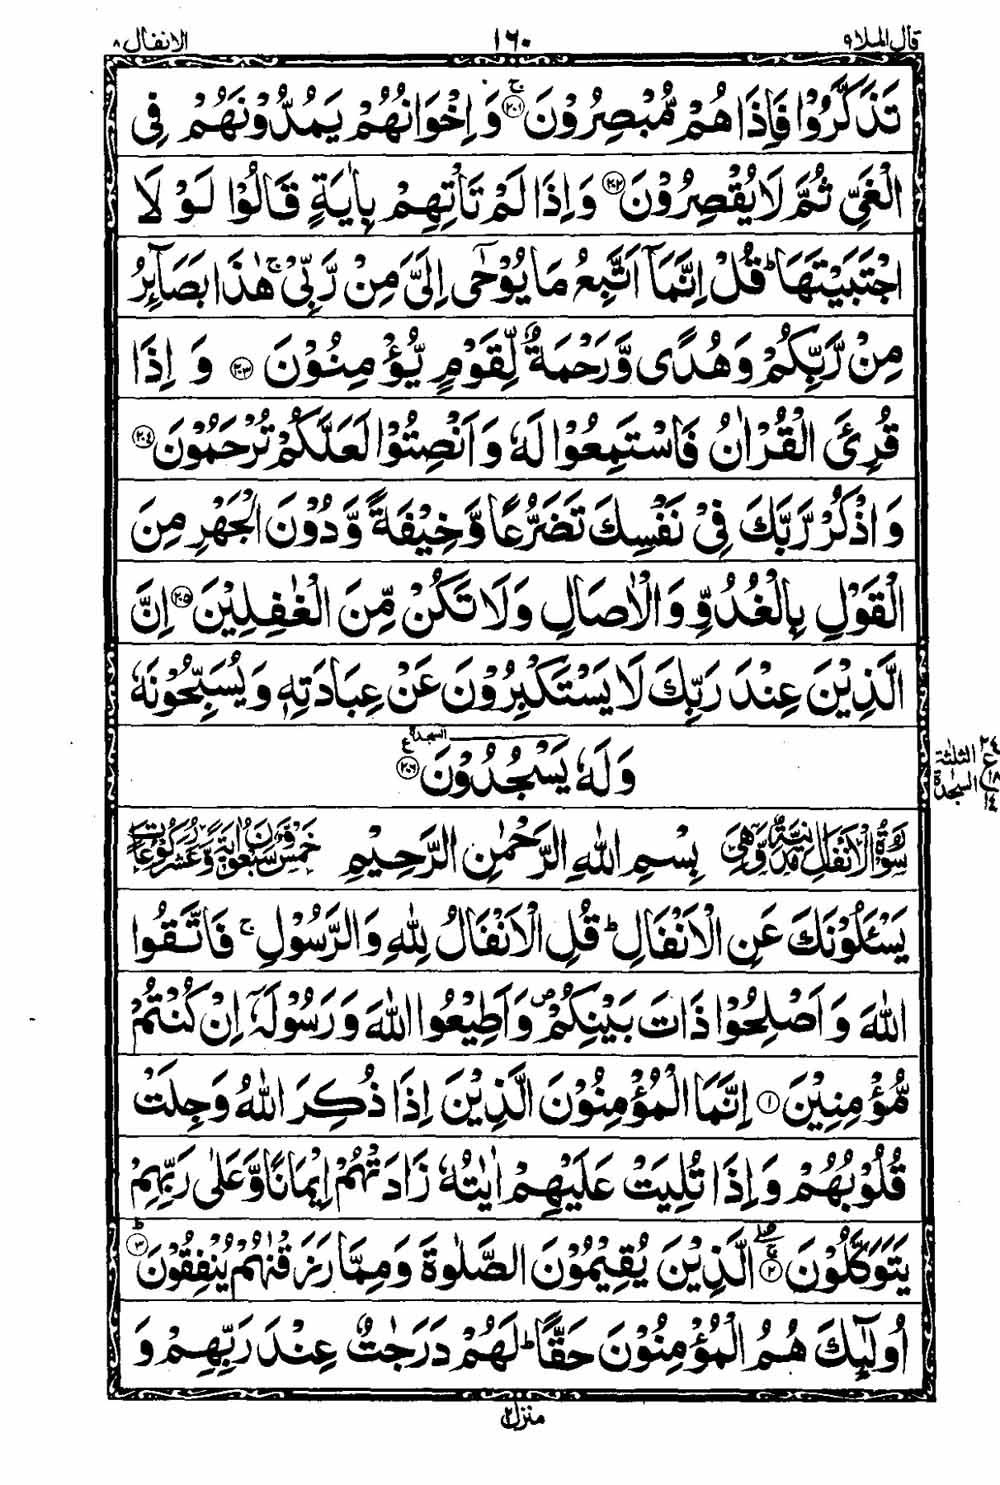 قال الملا ٩ ١٦٠ الانفال ٨
تَذَكَّرُوْا فَاِذَا هُمْ مُّبْصِرُوْنَ ۚ﴿۲۰۱﴾ وَ اِخْوَانُهُمْ يَمُدُّوْنَهُمْ فِى
الْغَىِّ ثُمَّ لَا يُقْصِرُوْنَ ﴿۲۰۲﴾ وَ اِذَا لَمْ تَاْتِهِمْ بِاٰيَةٍ قَالُوْا لَوْ لَا
اجْتَبَيْتَهَا ؕ قُلْ اِنَّمَاۤ اَتَّبِعُ مَا يُوْحٰۤى اِلَىَّ مِنْ رَّبِّىْ ۚ هٰذَا بَصَآئِرُ
مِنْ رَّبِّكُمْ وَ هُدًى وَّ رَحْمَةٌ لِّقَوْمٍ يُّؤْمِنُوْنَ ﴿۲۰۳﴾ وَ اِذَا
قُرِئَ الْقُرْاٰنُ فَاسْتَمِعُوْا لَهٗ وَ اَنْصِتُوْا لَعَلَّكُمْ تُرْحَمُوْنَ ﴿۲۰۴﴾
وَ اذْكُرْ رَّبَّكَ فِىْ نَفْسِكَ تَضَرُّعًا وَّ خِيْفَةً وَّ دُوْنَ الْجَهْرِ مِنَ
الْقَوْلِ بِالْغُدُوِّ وَ الْاٰصَالِ وَ لَا تَكُنْ مِّنَ الْغٰفِلِيْنَ ﴿۲۰۵﴾ اِنَّ
الَّذِيْنَ عِنْدَ رَبِّكَ لَا يَسْتَكْبِرُوْنَ عَنْ عِبَادَتِهٖ وَ يُسَبِّحُوْنَهٗ
وَ لَهٗ يَسْجُدُوْنَ ﴿۲۰۶﴾ السجدة ع
٢٤ ع ١٨ ١٤ الثلثة السجدة
سُوْرَةُ الْاَنْفَالِ مَدَنِيَّةٌ وَّهِىَ بِسْمِ اللّٰهِ الرَّحْمٰنِ الرَّحِيْمِ خَمْسٌ وَّسَبْعُوْنَ اٰيَةً وَّعَشْرُ رُكُوْعَاتٍ
يَسْـَٔلُوْنَكَ عَنِ الْاَنْفَالِ ؕ قُلِ الْاَنْفَالُ لِلّٰهِ وَ الرَّسُوْلِ ۚ فَاتَّقُوا
اللّٰهَ وَ اَصْلِحُوْا ذَاتَ بَيْنِكُمْ ۪ وَ اَطِيْعُوا اللّٰهَ وَ رَسُوْلَهٗۤ اِنْ كُنْتُمْ
مُّؤْمِنِيْنَ ﴿۱﴾ اِنَّمَا الْمُؤْمِنُوْنَ الَّذِيْنَ اِذَا ذُكِرَ اللّٰهُ وَجِلَتْ
قُلُوْبُهُمْ وَ اِذَا تُلِيَتْ عَلَيْهِمْ اٰيٰتُهٗ زَادَتْهُمْ اِيْمَانًا وَّ عَلٰى رَبِّهِمْ
يَتَوَكَّلُوْنَ ﴿۲﴾ الَّذِيْنَ يُقِيْمُوْنَ الصَّلٰوةَ وَ مِمَّا رَزَقْنٰهُمْ يُنْفِقُوْنَ ؕ﴿۳﴾
اُولٰٓئِكَ هُمُ الْمُؤْمِنُوْنَ حَقًّا ؕ لَهُمْ دَرَجٰتٌ عِنْدَ رَبِّهِمْ وَ
منزل ٢